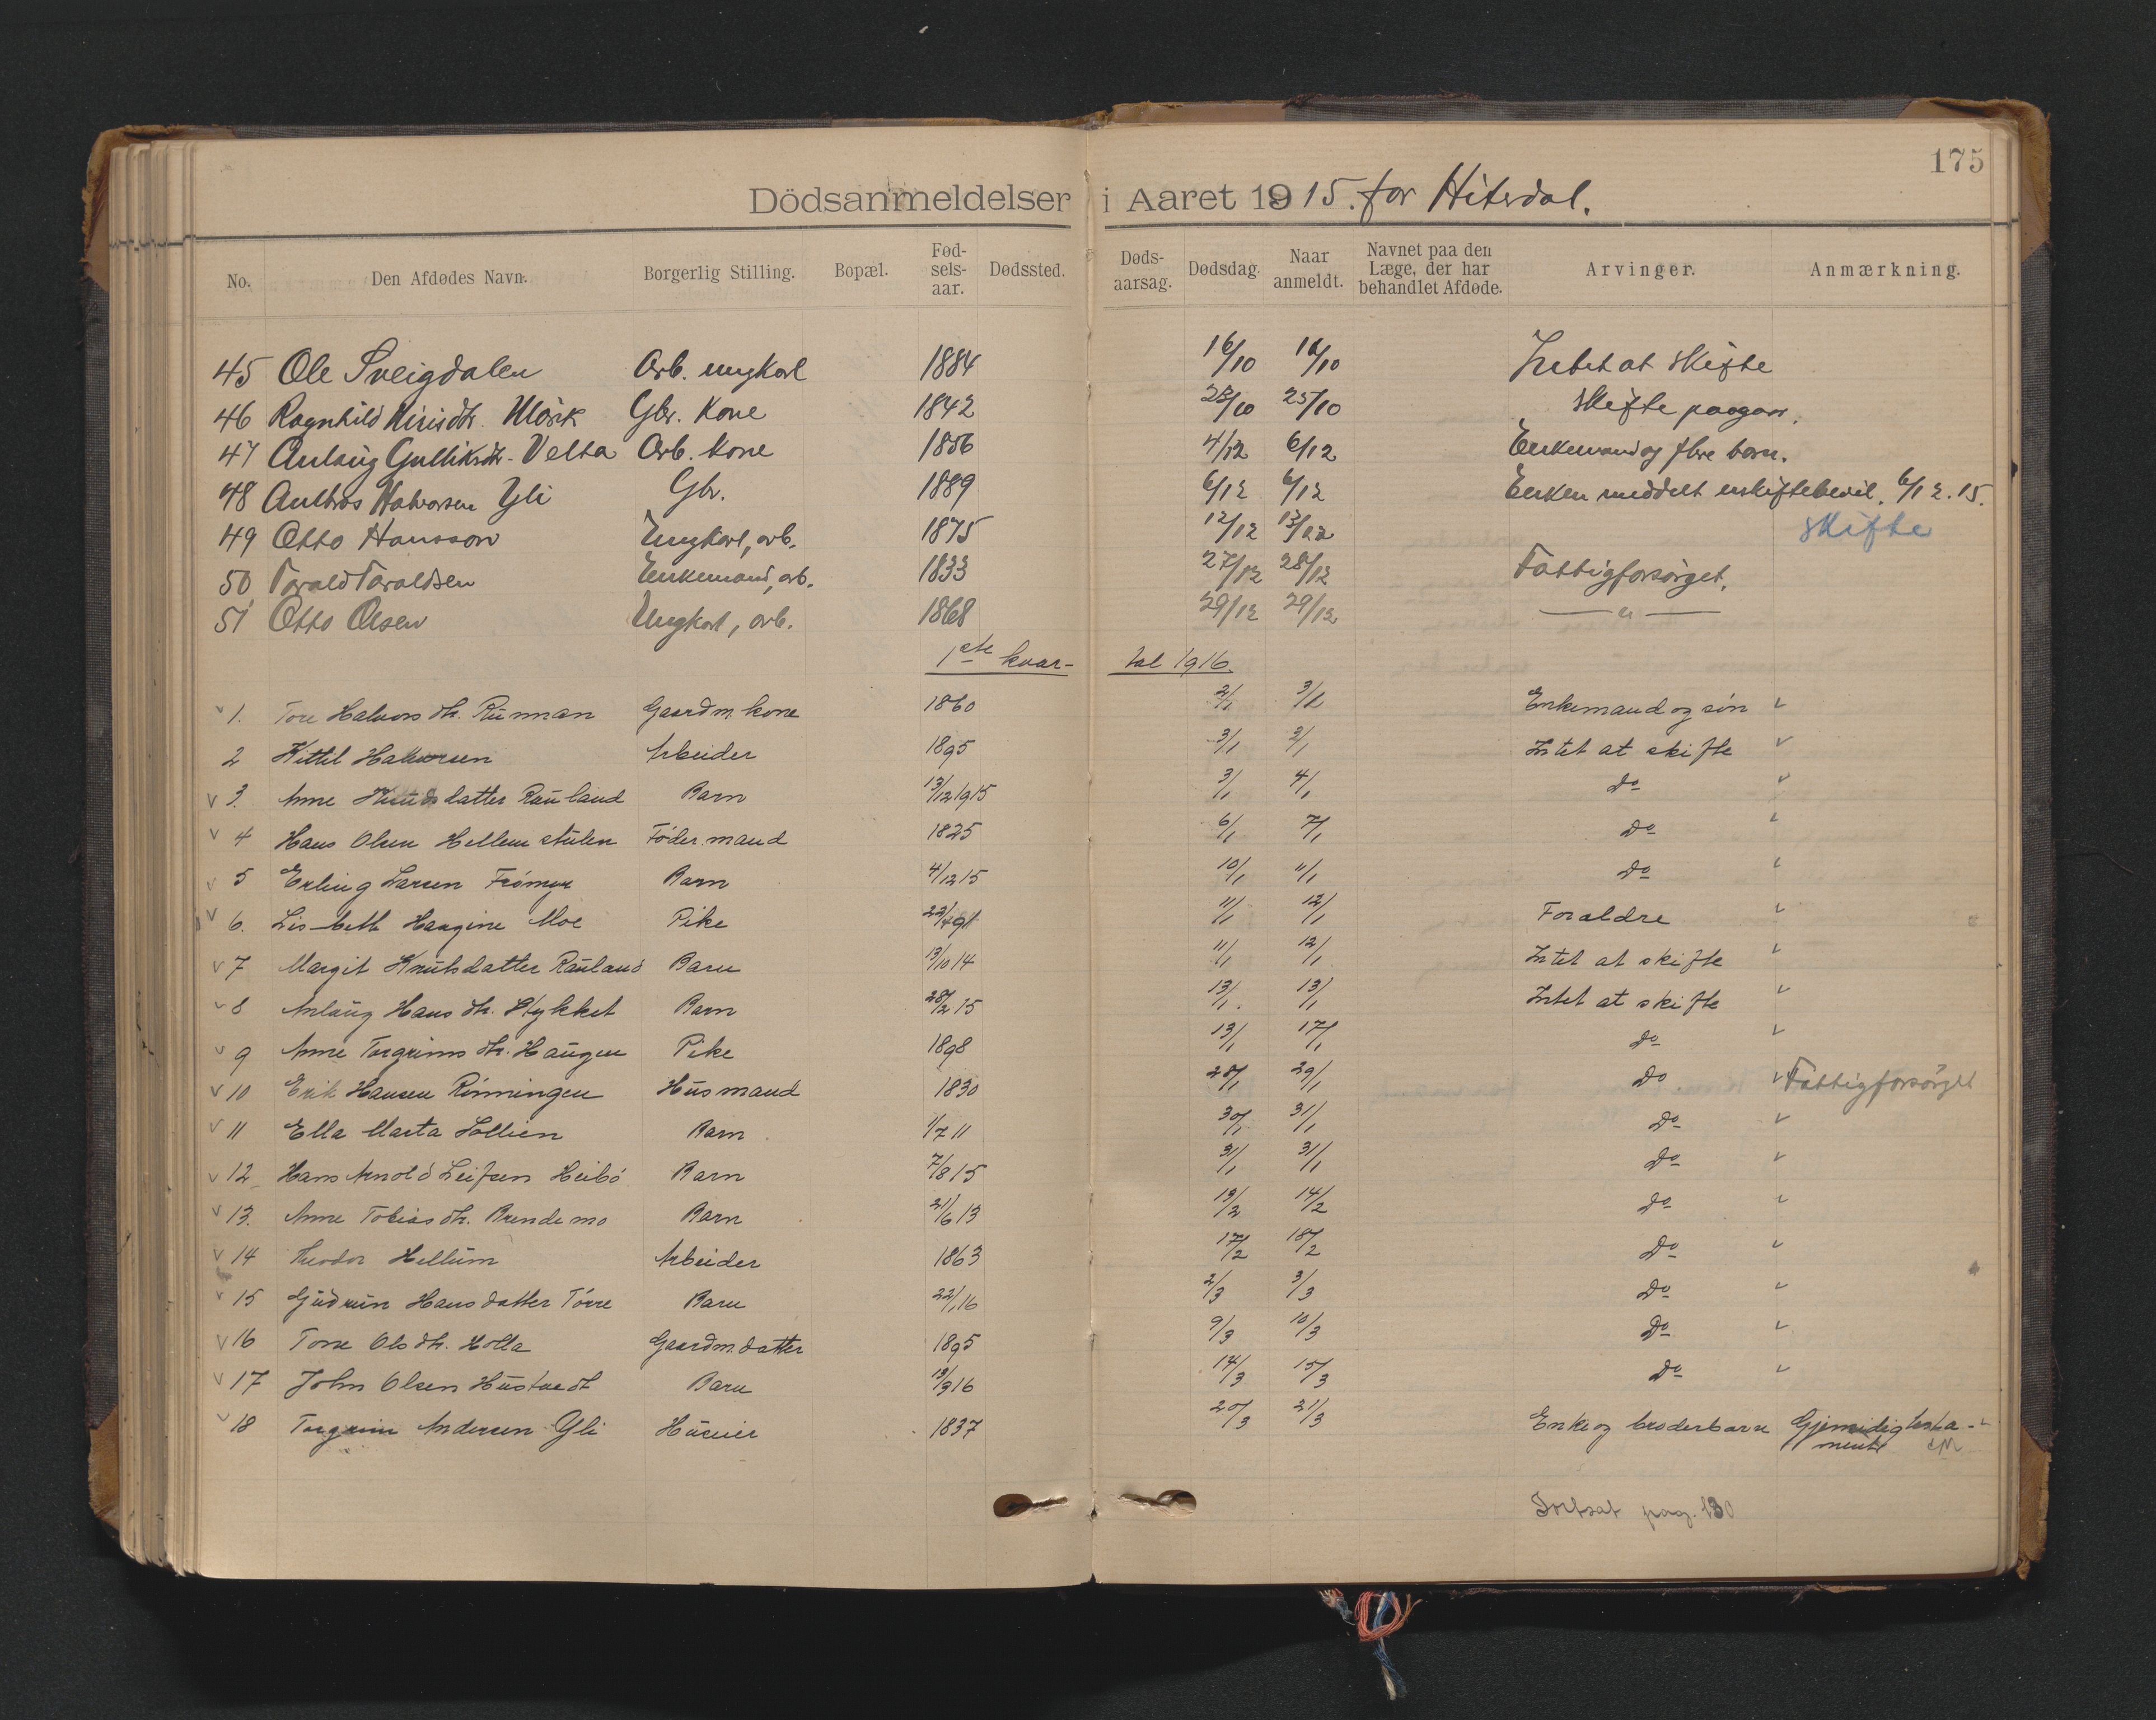 175
Dödsanmeldelser i Aaret 1915. for Hiterdal.
No. Den Afdødes Navn. Borgerlig Stilling. Bopæl. Fødselsaar. Dødssted. Dødsaarsag. Dødsdag. Naar anmeldt. Navnet paa den Læge, der har behandlet Afdøde. Arvinger. Anmærkning.
45 Ole Sveigdalen Arb. ungkarl 1884 16/10 16/10 Intet at skifte
46 Ragnhild Mörk Gbr. Kone 1842 25/10 Skifte paagaar.
47 Anlaug Gulliksdtr. Velta Arb. kone 1856 4/12 6/12 Enkemand og flere barn.
48 Halvorsen Yli Gbr. 1889 6/12 6/12 Enken meddelt uskiftebevil. 6/12.15.
49 Otto Hansson Ungkarl, arb. 1875 12/12 13/12 Skifte
50 Tarald Taraldsen Enkemand, arb. 1833 27/12 28/12 Fattigforsörget.
51 Otto Olsen Ungkarl, arb. 1868 29/12 29/12 — " —
1ste kvartal 1916.
1. Tore Halvorsdtr. Rünnan Gaardm. kone 1860 2/1 3/1 Enkemand og sön
2 Kittil Halvorsen Arbeider 1895 3/1 3/1 Intet at skifte
3. Anne Knudsdatter Rauland Barn 13/12 1915 3/1 4/1 Do
4 Hans Olsen Hellem stulen Föder.mand 1825 6/1 7/1 Do
5 Erling Larsen Barn 4/12 15 10/1 11/1 Do
6. Lisbeth Haugine Moe Pike 11/1 12/1 Foraldre
7 Margit Knutsdatter Rauland Barn 13/10 14 11/1 12/1 Intet at skifte
8 Anlaug Hansdtr. Stykket Barn 28/2 15 13/1 13/1 Intet at skifte
9 Anne Torgrimsdtr. Haugen Pike 1898 13/1 17/1 Do
10 Erik Hansen Rönningen Husmand 1830 28/1 29/1 Do Fattigforsörget
11 Ella Marta Sollien Barn 1/7 11 30/1 31/1 Do
12 Hans Arnold Leifsen Heibö Barn 7/8 15 31/1 31/1 Do
13. Anne Tobiasdtr. Brendemo Barn 21/6 13 13/2 14/2 Do
14 Theodor Hellum Arbeider 1863 17/2 18/2 Do
15 Gudrun Hansdatter Törre Barn 22/1 16 2/3 3/3 Do
16 Tone Olsdtr. Holla Gaardm. datter 1895 9/3 10/3 Do
17 John Olsen Hustvedt Barn 13/3 16 14/3 15/3 Do
18 Torgrim Andersen Yli Huseier 1837 20/3 21/3 Enke og broderbarn Gjensidig testamente
Fortsat pag. 130